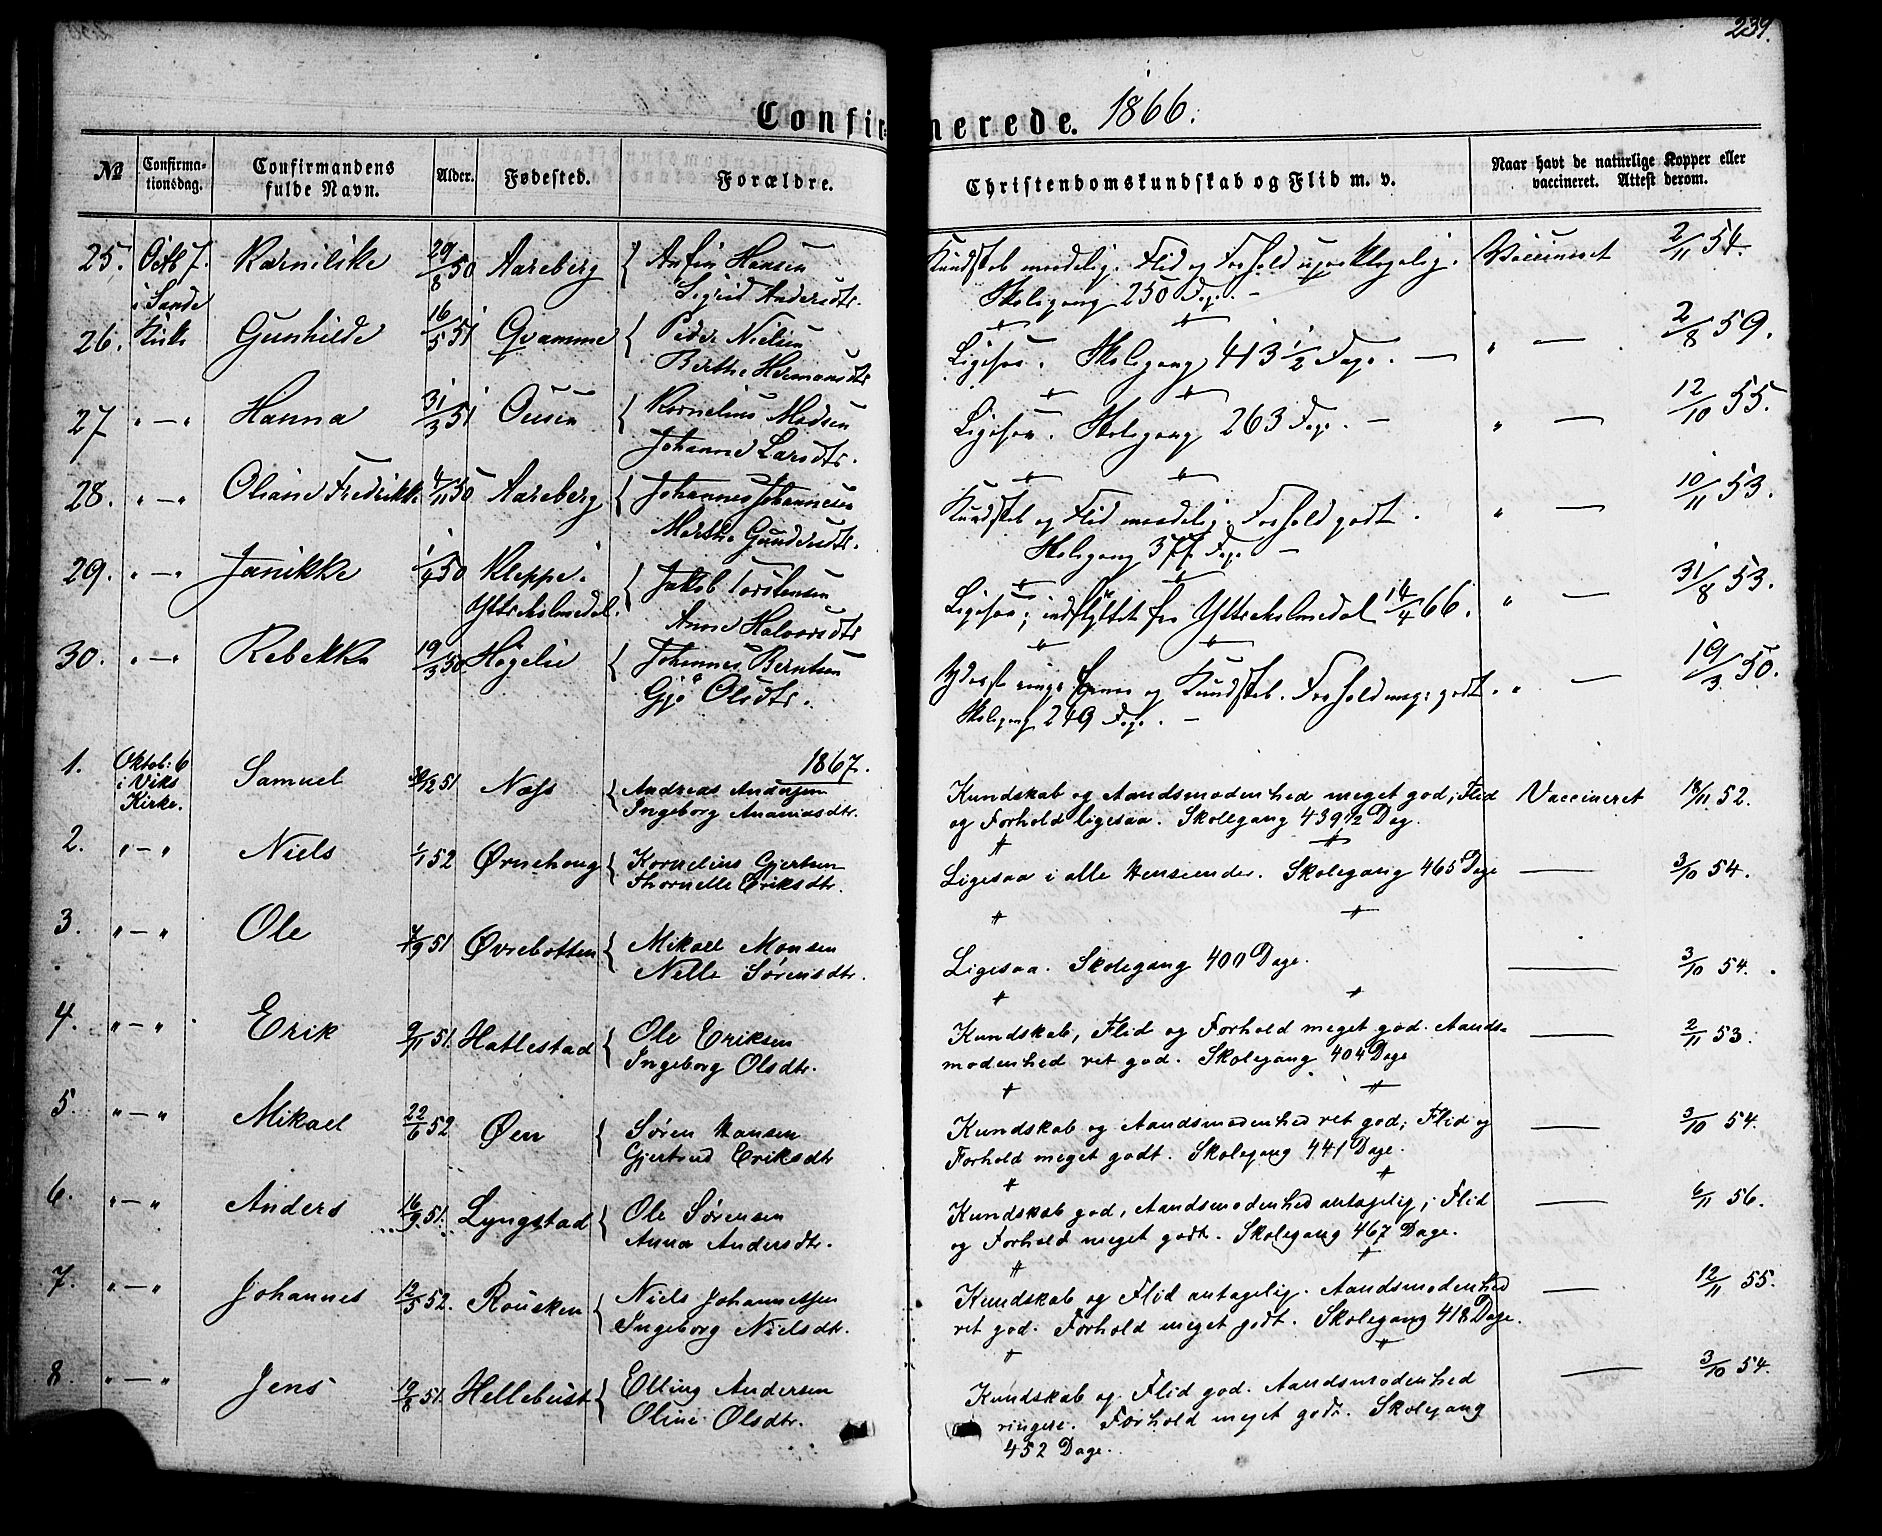 239.
Confirmerede. 1866.
№ Confirma-tionsdag. Confirmandens fulde Navn. Alder. Fødested. Forældre. Christendomskundskab og Flid m. v. Naar havt de naturlige Kopper eller vaccineret. Attest derom.
25. Octb 7. 29/8 50 Aareberg { Anfin Hansen Kundskab maadelig. Flid og Forhold upaaklagelig. Vaccineret 2/11 54.
i Sande Sigrid Andersdtr. Skolegang 250 Dage. —
26. Kirke Gunhilde 16/5 51 Qvamme { Peder Nielsen Ligesaa. Skolegang 413 1/2 Dage. — " — 2/8 59.
Berthe Hermansdtr
27 " — " Hanna 31/3 51 Ousen { Kornelius Madsen Ligesaa. Skolegang 263 Dage. — " — 12/10 55.
Johanne Larsdtr.
28. " — " Oliane Fredrikke 4/11 50 Aareberg { Johannes Johannesen Kundskab og Flid maadelig. Forhold godt. " — 10/11 53.
Marthe Gundersdtr. Skolegang 377 Dage —
29. " — " Janikke 1/4 50 Kleppe i { Jakob Torstensen Ligesaa; indflyttet fra Yttreholmedal 14/4 66. " — 31/8 53.
Yttreholmedal. Anne Halvorsdtr
30. " — " Rebekka 19/3 50 Høgelie { Johannes Berntsen Yderst ringe Evner og Kundskab. Forhold meget godt. " — 19/3 50.
Gjø Olsdtr. Skolegang 249 Dage. —
1867.
1. Oktob: 6 Samuel 30/12 51 Næss { Andreas Andersen Kundskab og Aandsmodenhed meget god; Flid Vaccineret 18/11 52.
i Viks Kirke. Ingeborg Ananiasdtr. og Forhold ligesaa. Skolegang 439 1/2 Dag.
2. " — " Niels 1/1 52 Ørnehoug { Kornelius Gjertsen Ligesaa i alle Henseender. Skolegang 465 Dage — 3/10 54.
Thornelle Eriksdtr.
3. " — " Ole 7/9 51 Øvrebotten { Mikael Monsen Ligesaa. Skolegang 400 Dage. — 3/10 54.
Nille Sørensdtr.
4. " — " Erik 9/11 51. Hatlestad { Ole Eriksen Kundskab, Flid og Forhold meget god. Aands- — 2/11 53.
Ingeborg Olsdtr. modenhed ret god. Skolegang 404 Dage
5. " — " Mikael 22/6 52 Øen { Søren Hansen Kundskab og Aandsmodenhed ret god; Flid og — 3/10 54.
Gjertrud Eriksdtr Forhold meget godt. Skolegang 441 Dage.
6. " — " Anders 16/9 51. Lyngstad { Ole Sørensen Kundskab god, Aandsmodenhed antagelig; Flid — 6/11 56.
Anna Andersdtr. og Forhold meget godt. Skolegang 467 Dage.
7. " — " Johannes 12/5 52. Rousken { Niels Johannessen Kundskab og Flid antagelig. Aandsmodenhed — 12/11 55.
Ingeborg Nielsdtr. ret god. Forhold meget godt. Skolegang 418 Dage.
8. " — " Jens 19/8 51. Hellebust { Elling Andersen Kundskab og Flid god. Aandsmodenhed — 3/10 54.
Oline Olsdtr. ringere. Forhold meget godt. Skolegang
452 Dage.